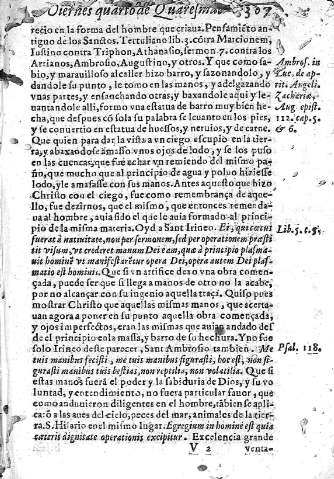 Viernes quarto de Quaresma. 307
recio en la forma del hombre que criaua. Pensamiẽto an-
tiguo de los Sanctos. Tertuliano lib. 4. cõtra Marcionem,
Iustino contra Triphon, Athanasio, sermon 7. contra los
Arrianos, Ambrosio, Augustino, y otros. Y que como sa-
bio, y marauilloso alcaller hizo barro, y sazonandolo, y
dandole su punto, le tomo en las manos, y adelgazando
vnas partes, y ensanchando otras, y baxandole aqui y le-
uantandole alli, formo vna estatua de barro muy bien he-
cha, que despues cõ sola su palabra se leuanto en los pies,
y se conuertio en estatua de huessos, y neruios, y de carne.
Que quien para dar la vista a vn ciego escupio en la tier-
ra, y abaxandose amasso vnos ojos de lodo, y se los puso
en las cuencas, que fue echar vn remiendo del mismo pa-
ño, que mucho que al principio de agua y poluo hiziesse
lodo, y le amasasse con sus manos. Antes aquesto que hizo
Christo con el ciego, fue como remembrança de aque-
llo, fue dezirnos, que el mismo, que entonces remenda-
ua al hombre, auia sido el que le auia formado al princi-
pio de la misma materia. Oyd a Sant Irineo. Ei, qui cæcus
fuerat à natiuitate, non per sermonem, sed per operationem præsti-
tit visum, vt ostenderet manum Dei eam, quæ à principio plasma-
uit hominẽ vt manifestaretur opera Dei, opera autem Dei plas-
matio est hominis. Que si vn artifice dexo vna obra comen-
çada, puede ser que si llega a manos de otro no la acabe,
por no alcançar con su ingenio aquella traça. Quiso pues
mostrar Christo que aquellas mismas manos, que acerta-
uan agora a poner en su punto aquella obra començada,
y ojos imperfectos, eran las mismas que auian andado des
de el principio en la massa, y barro de su hechura. Y no fue
solo Irineo desse parecer, Sant Ambrosio tambien. Me
tuæ manibus fecisti, me tuis manibus figurasti, hoc est, non fi-
gurasti manibus tuis bestias, non reptilia, non volatilia. Que si
estas manos fuera el poder y la sabiduria de Dios, y su vo
luntad, y entendimiento, no fuera particular fauor, que
como anduuieron diligentes en el hombre, tãbien se aplica-
rã a las aues del cielo, peces del mar, animales de la tier-
ra. S. Hilario en el mismo lugar. Egregium in homine est quia
cæteris dignitate operationis excipitur. Excelencia grande
V 2 venta-
Ambros. in
Luc. de ap-
rit. Angeli.
Zacharie.
Aug. epist.
112. cap. 5.
& 6.
Lib. 5. c. 5.
Psal. 118.